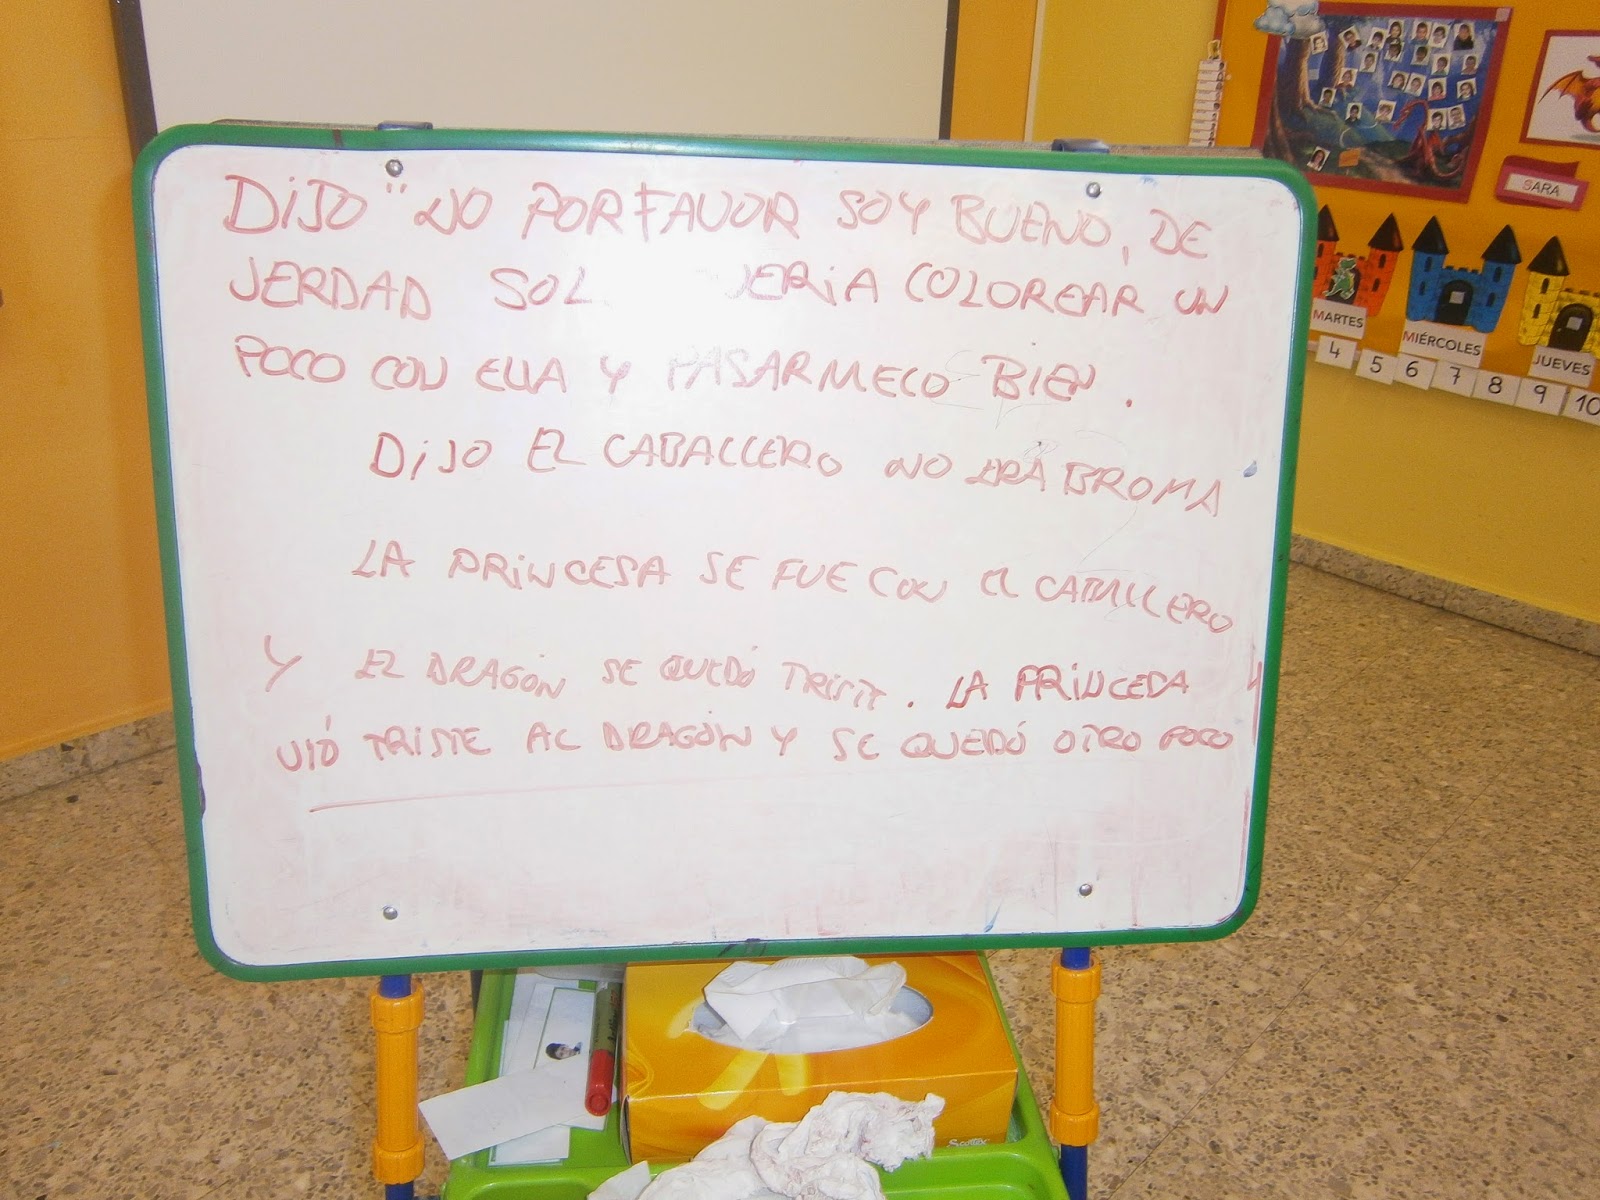 DIJO "NO POR FAVOR SOY BUENO, DE
VERDAD SOL ERIA COLOREAR UN
POCO CON ELLA Y PASARMELO BIEN.
DIJO EL CABALLERO NO ERA BROMA
LA PRINCESA SE FUE CON EL CABALLERO
Y EL DRAGÓN SE QUEDÓ TRISTE. LA PRINCESA
VIÓ TRISTE AL DRAGÓN Y SE QUEDÓ OTRO POCO
SARA
MARTES
MIÉRCOLES
JUEVES
4 5 6 7 8 9 10
Scottex